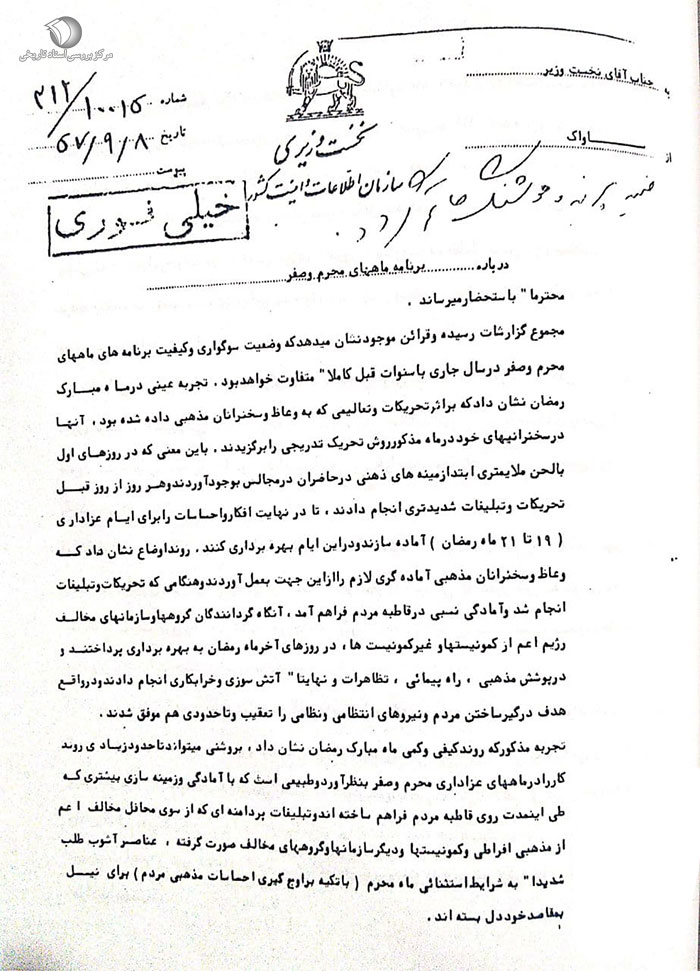 مرکز بررسی اسناد تاریخی
به جناب آقای نخست وزیر
از ساواک
شماره ۳۱۲/۱۰۰۱۵
تاریخ ۵۷/۹/۸
پیوست
نخست وزیری
سازمان اطلاعات و امنیت کشور
خیلی فوری
ضمیمه پرونده
درباره برنامه ماههای محرم وصفر
محترما" باستحضارمیرساند .
مجموع گزارشات رسیده وقرائن موجودنشان میدهدکه وضعیت سوگواری وکیفیت برنامه های ماههای
محرم وصفر درسال جاری باسنوات قبل کاملا" متفاوت خواهدبود . تجربه عینی درماه مبارک
رمضان نشان دادکه براثرتحریکات وتعالیمی که به وعاظ وسخنرانان مذهبی داده شده بود ، آنها
درسخنرانیهای خوددرماه مذکورروش تحریک تدریجی رابرگزیدند . باین معنی که در روزهای اول
بالحن ملایمتری ابتدازمینه های ذهنی درحاضران درمجالس بوجودآوردندوهر روز از روز قبل
تحریکات وتبلیغات شدیدتری انجام دادند ، تا در نهایت افکارواحساسات رابرای ایام عزاداری
( ۱۹ تا ۲۱ ماه رمضان ) آماده سازندودراین ایام بهره برداری کنند . رونداوضاع نشان داد که
وعاظ وسخنرانان مذهبی آماده گری لازم راازاین جهت بعمل آوردندوهنگامی که تحریکات‌وتبلیغات
انجام شد وآمادگی نسبی درقاطبه مردم فراهم آمد ، آنگاه گردانندگان گروههاوسازمانهای مخالف
رژیم اعم از کمونیستهاو غیرکمونیست ها ، در روزهای آخرماه رمضان به بهره برداری پرداختند و
درپوشش مذهبی ، راه پیمائی ، تظاهرات و نهایتا" آتش سوزی وخرابکاری انجام دادندودرواقع
هدف درگیرساختن مردم ونیروهای انتظامی ونظامی را تعقیب وتاحدودی هم موفق شدند .
تجربه مذکورکه روندکیفی وکمی ماه مبارک رمضان نشان داد ، بروشنی میتواندتاحدودزیادی روند
کاررادرماههای عزاداری محرم وصفر بنظرآوردوطبیعی است که با آمادگی وزمینه سازی بیشتری که
طی اینمدت روی قاطبه مردم فراهم ساخته اندوتبلیغات پردامنه ای که از سوی محافل مخالف اعم
از مذهبی افراطی وکمونیستها ودیگرسازمانهاوگروههای مخالف صورت گرفته ، عناصر آشوب طلب
شدیدا" به شرایط استثنائی ماه محرم ( باتکیه براوج گیری احساسات مذهبی مردم ) برای نیل
بمقاصدخوددل بسته اند .